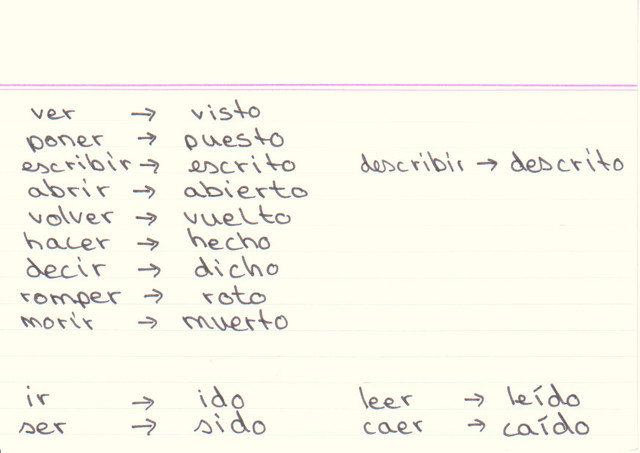 ver → visto
poner → puesto
escribir → escrito describir → descrito
abrir → abierto
volver → vuelto
hacer → hecho
decir → dicho
romper → roto
morir → muerto
ir → ido leer → leído
ser → sido caer → caído